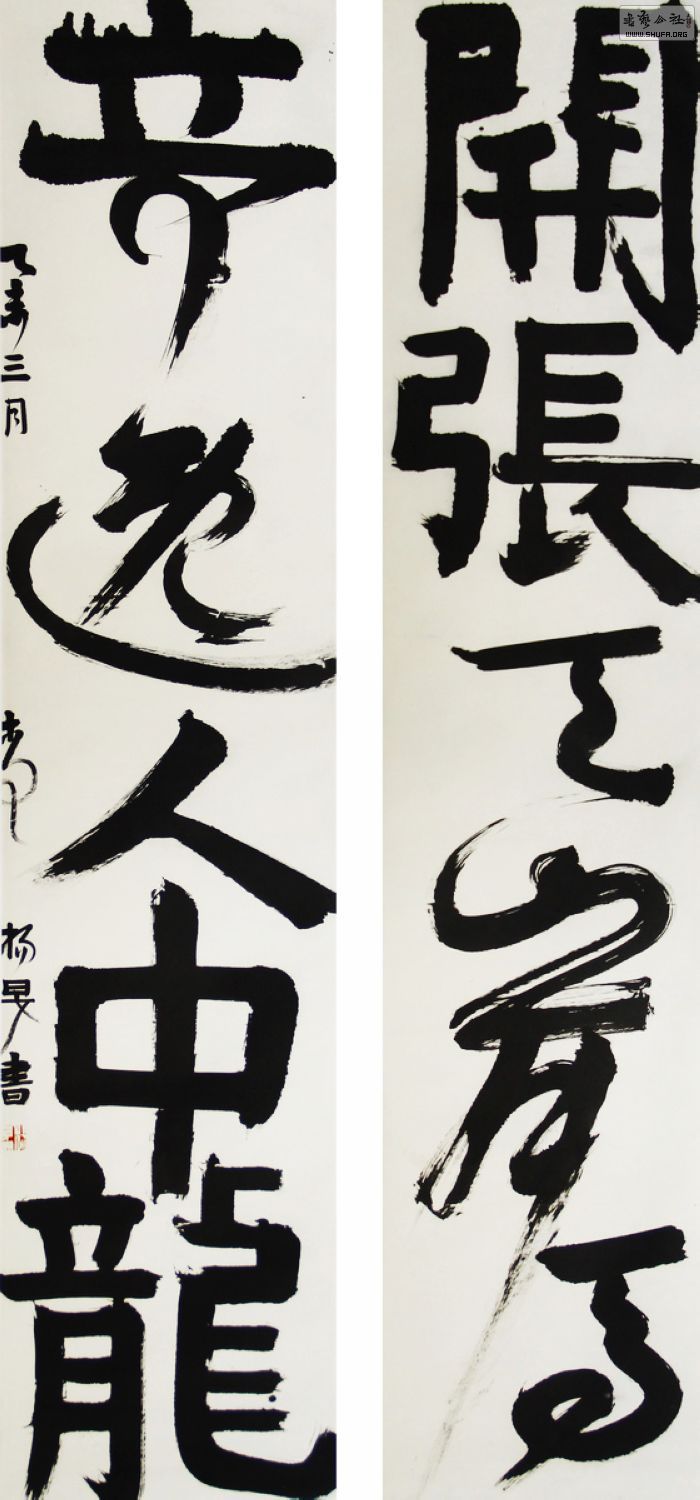 書藝公社
WWW.SHUFA.ORG
開張天岸馬
竒逸人中龍
三月 杨旻書